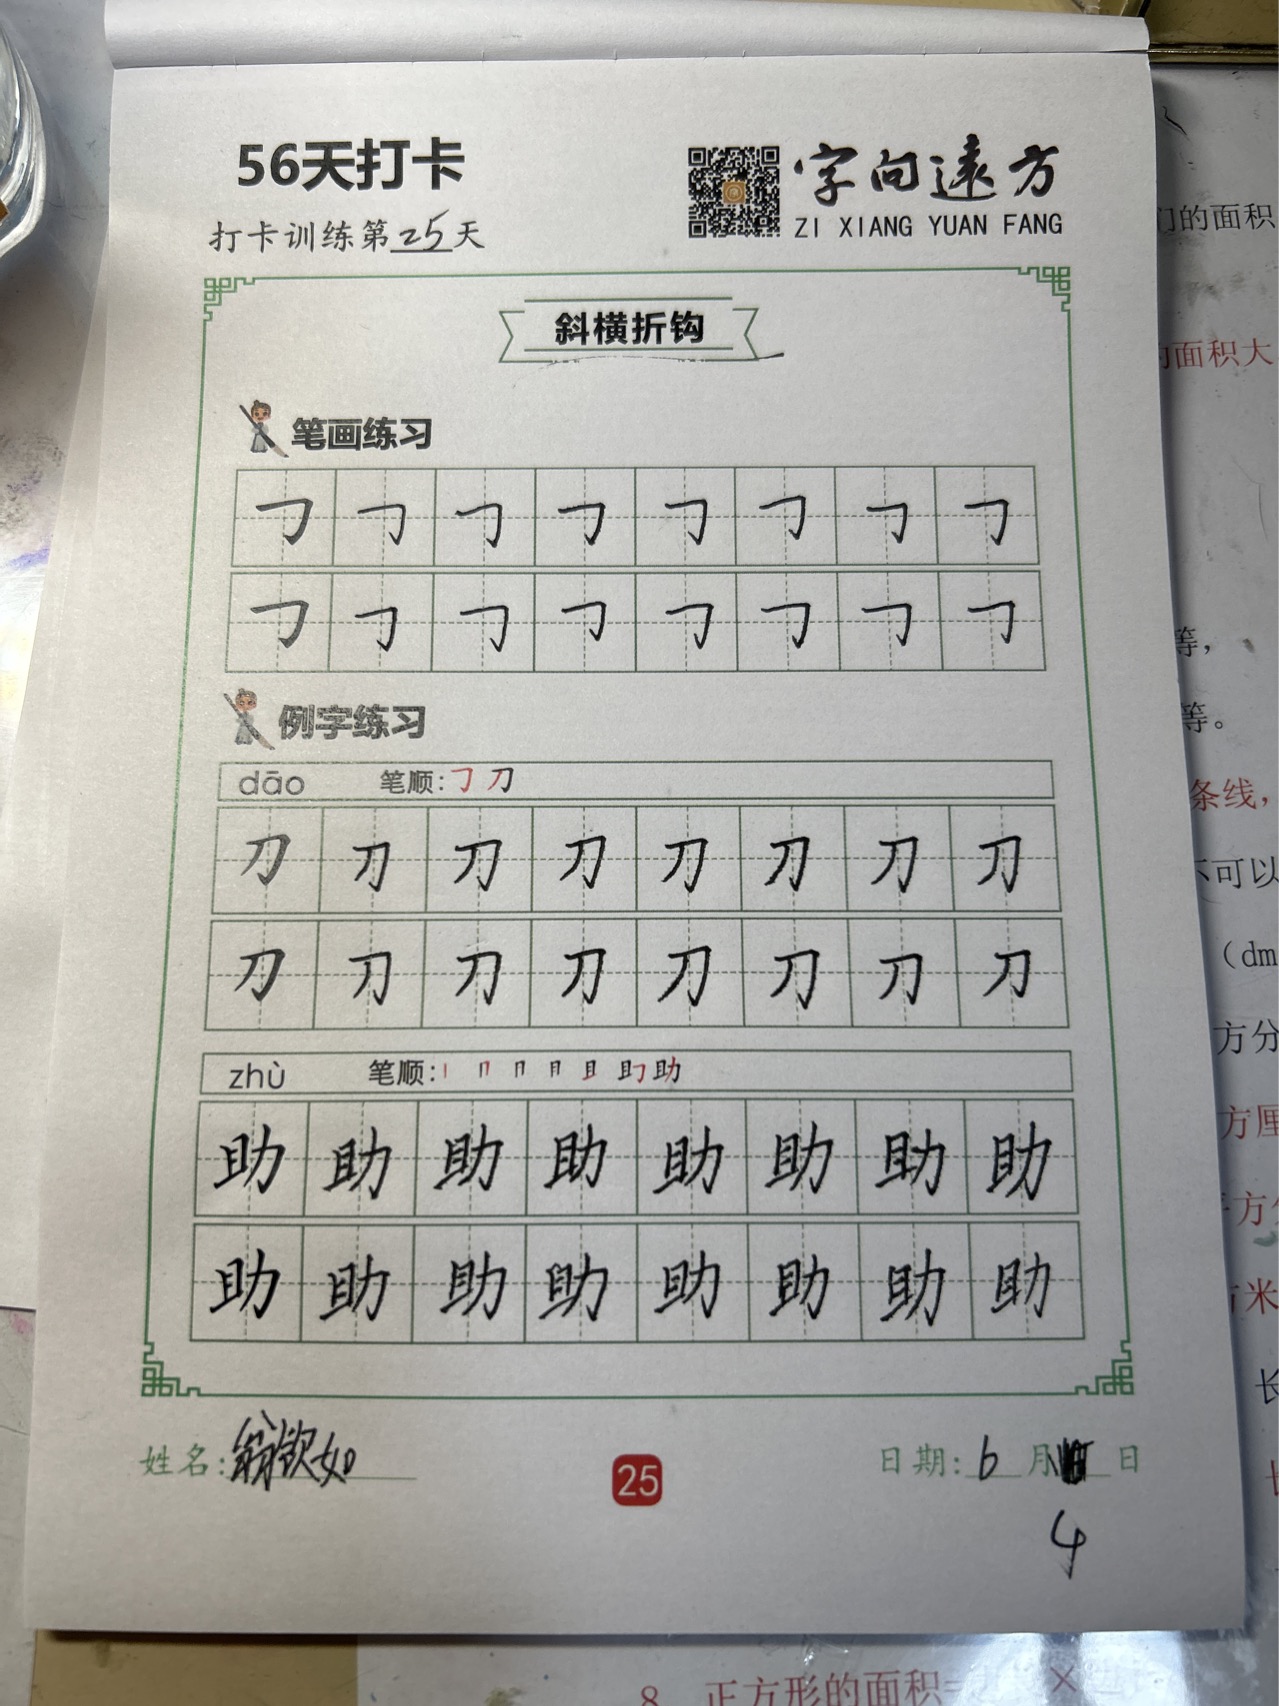 56天打卡
字向远方
ZI XIANG YUAN FANG
打卡训练第25天
斜横折钩
笔画练习
㇆ ㇆ ㇆ ㇆ ㇆ ㇆ ㇆ ㇆
㇆ ㇆ ㇆ ㇆ ㇆ ㇆ ㇆ ㇆
例字练习
dāo 笔顺:㇆ 刀
刀 刀 刀 刀 刀 刀 刀 刀
刀 刀 刀 刀 刀 刀 刀 刀
zhù 笔顺: 助
助 助 助 助 助 助 助 助
助 助 助 助 助 助 助 助
姓名:翁欲如
25
日期:6月 日
4
们的面积
的面积大
等,
等。
条线,
不可以
(dm
方分
方厘
平方分
方米
长
8. 正方形的面积= ×